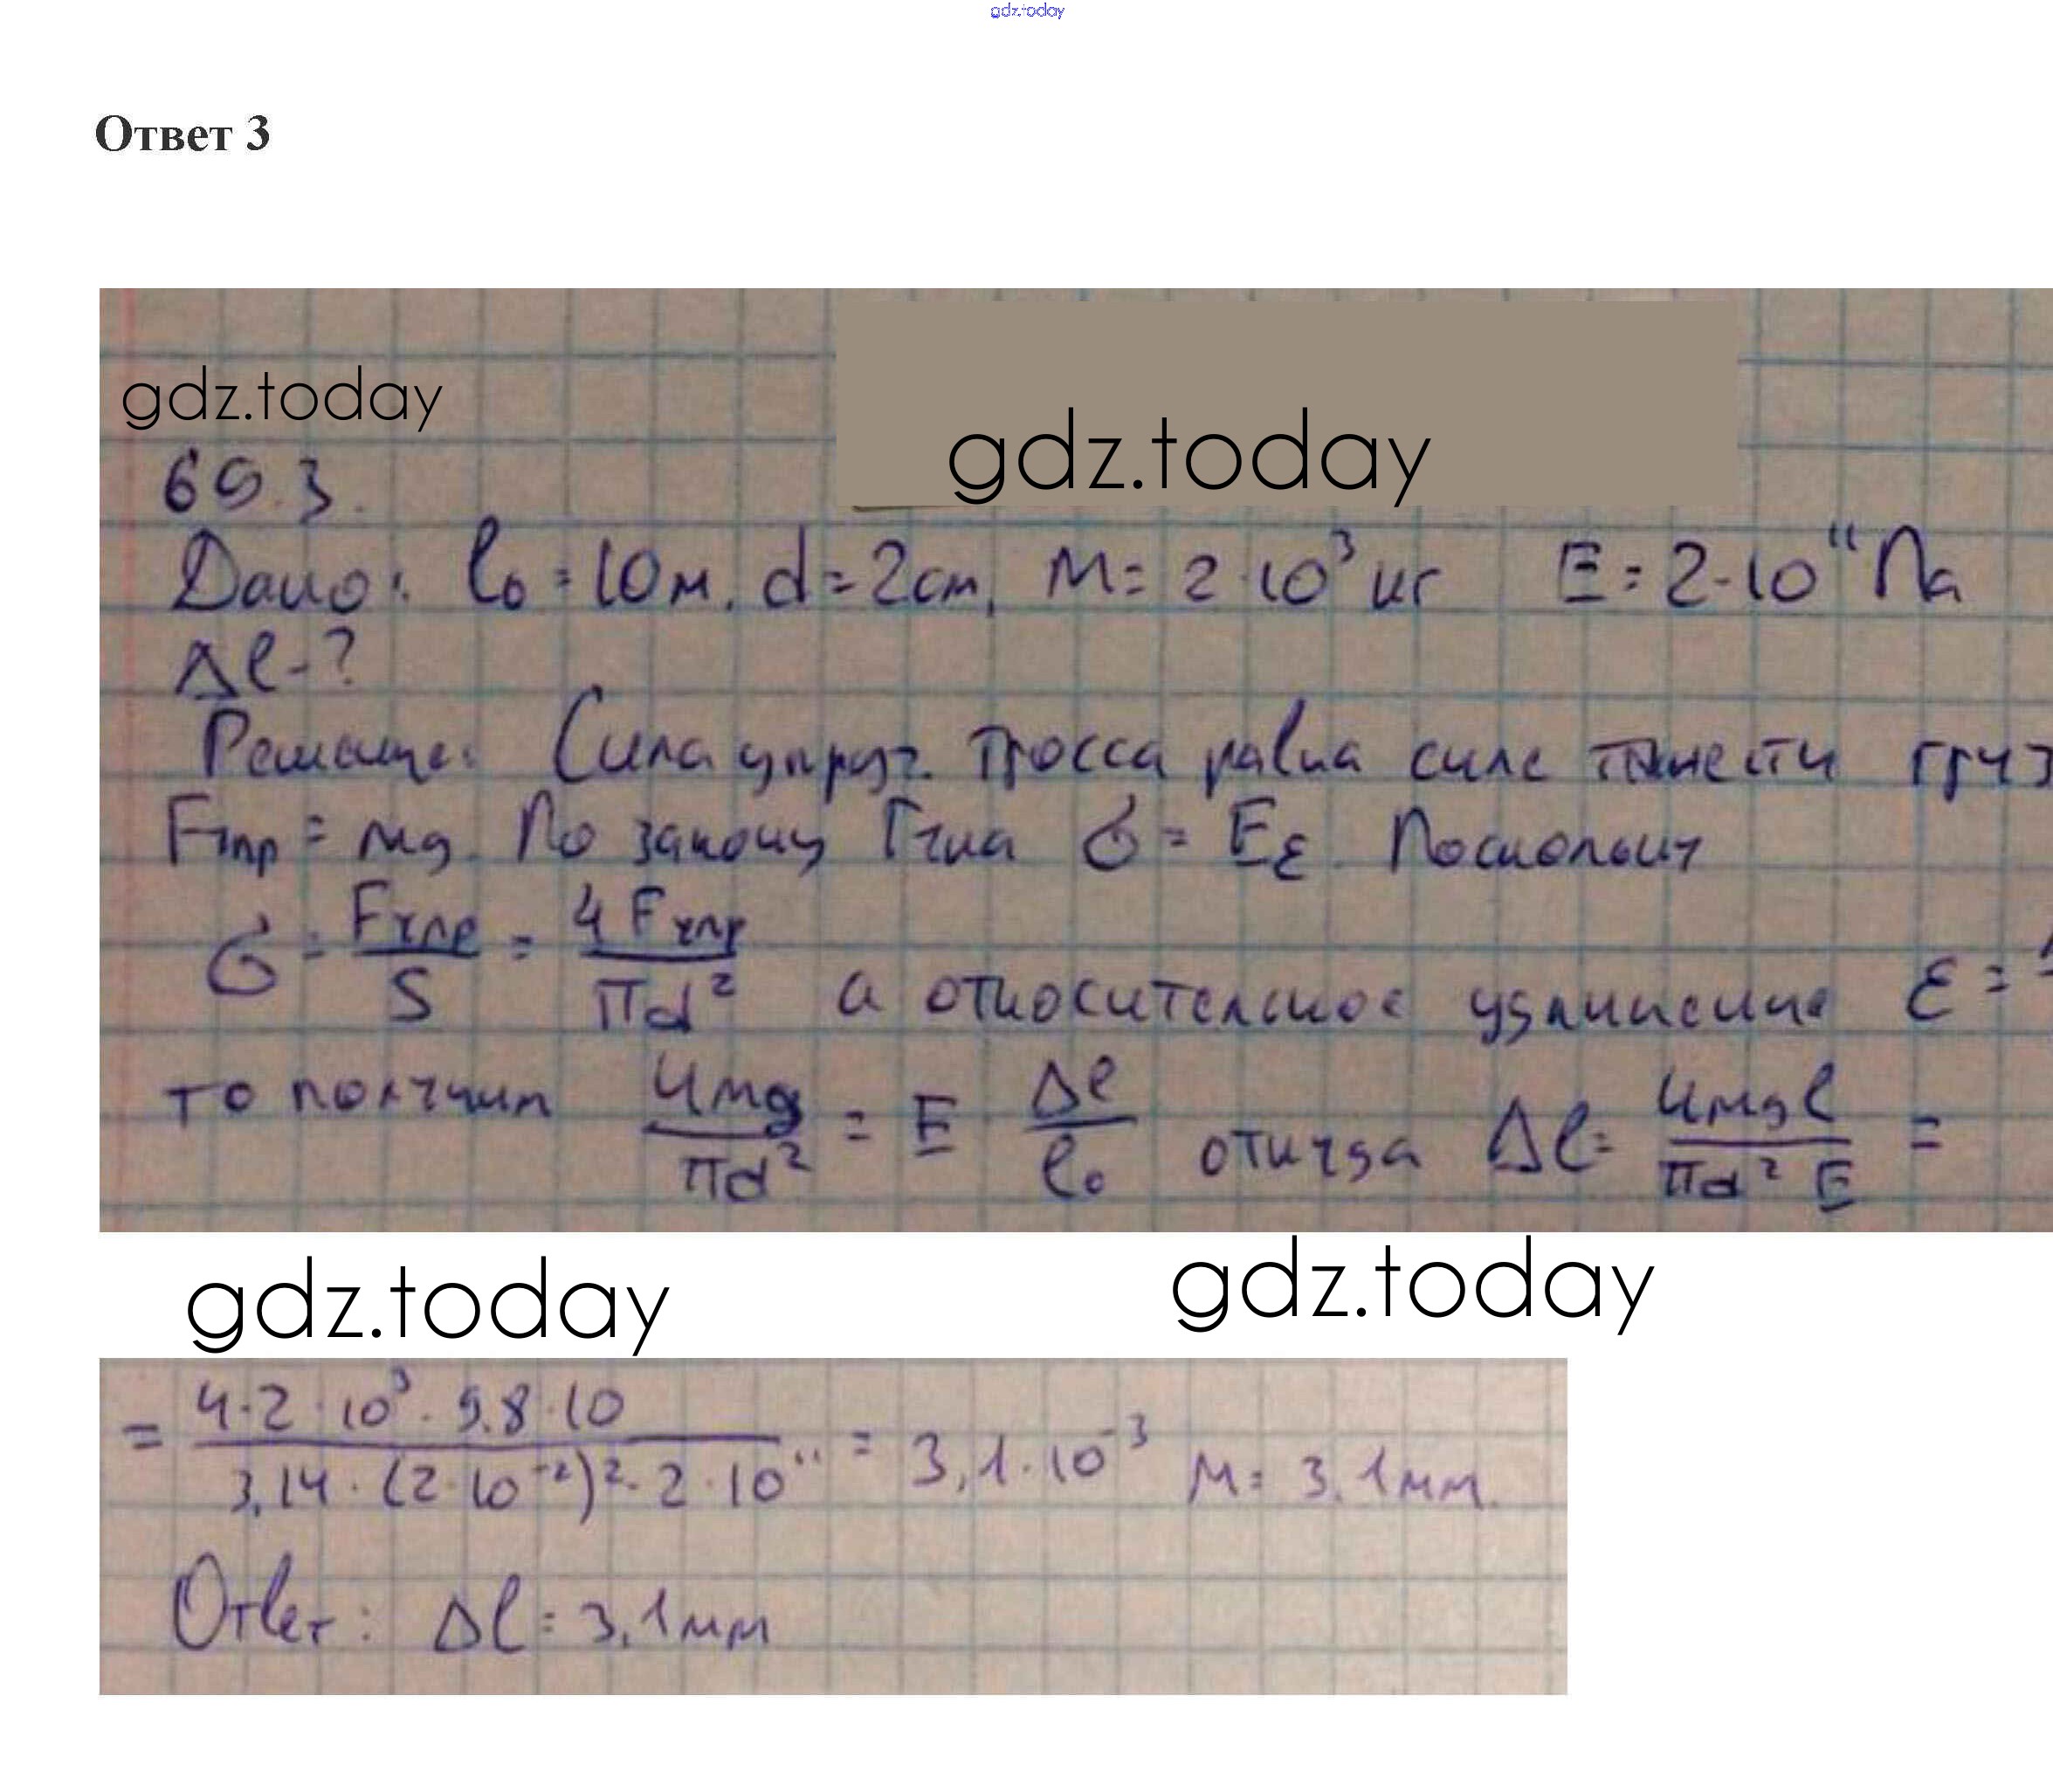 gdz.today
Ответ 3
gdz.today
gdz.today
69.3.
Дано: l₀ = 10м, d = 2см, M = 2·10³ кг E = 2·10¹¹ Па
Δl - ?
Решение: Сила упруг. тросса равна силе тяжести груз
Fупр = mg. По закону Гука σ = Eε. Поскольку
σ = Fупр/S = 4Fупр/πd² а относительное удлинение ε =
то получим 4mg/πd² = E Δl/l₀ откуда Δl = 4mgl/πd²E =
gdz.today gdz.today
= 4·2·10³·9.8·10/3,14·(2·10⁻²)²·2·10¹¹ = 3,1·10⁻³ м = 3.1мм.
Ответ: Δl = 3,1мм